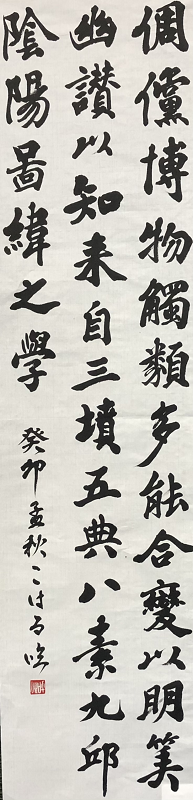 倜儻博物觸類多能合變以明筭
幽讚以知来自三墳五典八素九邱
陰陽啚緯之學
癸卯孟秋